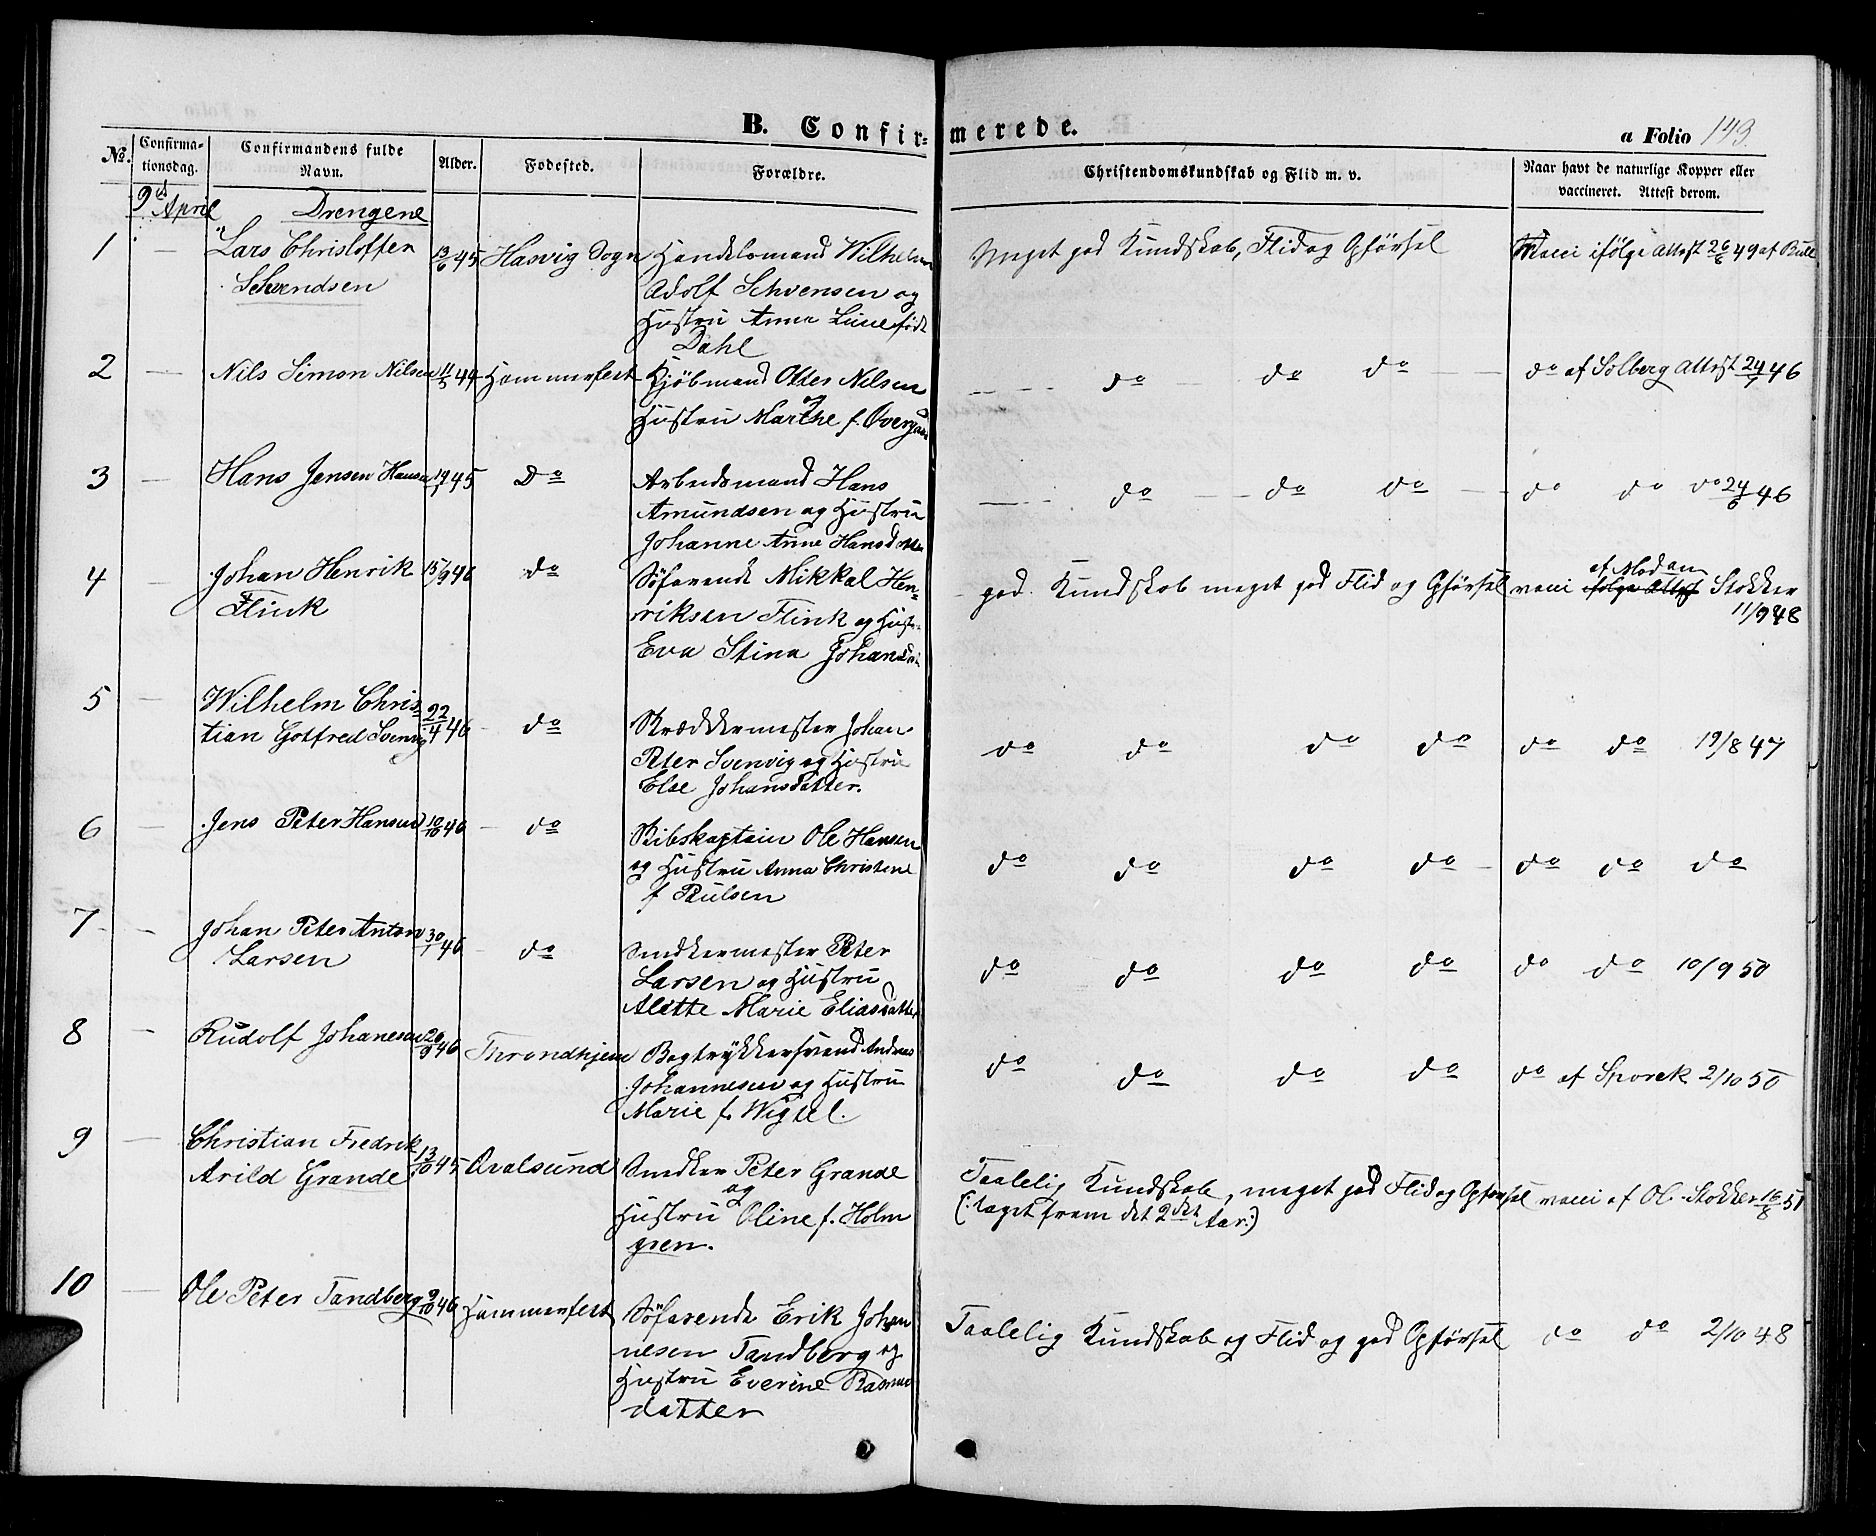 B. Confir-merede.
a Folio 143.
No.
Confirma-tionsdag.
Confirmandens fulde Navn.
Alder.
Fødested.
Forældre.
Christendomskundskab og Flid m. v.
Naar havt de naturlige Kopper eller vaccineret. Attest derom.
9d April
Drengene
1 — Lars Christoffer 13/6 45 Hasvig Sogn Handelsmand Wilhelm Meget god Kundskab, Flid og Opførsel Vacci ifølge Attest 26/6 49 af Bull
Schvendsen Adolf Schvensen og
Hustru Anna Line født
Dahl
2 — Nils Simon Nilsen 11/5 44 Hammerfest Kjöbmand Otter Nilsen do do do do af Solberg Attest 24/7 46
og
Hustru Marthe f. Overgaard
3 — Hans Jensen Hansen 19/1 45 Do Arbeidsmand Hans do do do do do do 24/6 46
Amundsen og Hustru
Johanne Anne Hansdatter
4 — Johan Henrik 15/9 46 do Søfarende Mikkal Hen- god Kundskab meget god Flid og Opførsel vacci ifølge Attest af Madam Stokker
Flink riksen Flink og Hustru 11/9 48
Eva Stina Johansdtr
5 — Wilhelm Chris- 22/4 46 do Skræddermester Johan do do do do do do 19/8 47
tian Gotfred Svenvig Peter Svenvig og Hustru
Else Johansdatter.
6 — Jens Peter Hansen 10/10 46 do Skibskaptain Ole Hansen do do do do do do do
og Hustru Anna Christine
f Paulsen
7 — Johan Peter Anton 30/1 46 do Snedkermester Peter do do do do do do 10/9 50
Larsen Larsen og Hustru
Alette Marie Eliasdatter
8 — Rudolf Johanesen 20/9 46 Throndhjem Bogtrykkersvend Andreas do do do do do af Sporck 2/10 50
Johannesen og Hustru
Marie f. Wigtel.
9 — Christian Fredrik 13/10 45 Qvalsund Snedker Peter Grande Taalelig Kundskab, meget god Flid og Opførsel vacci af Ol. Stokker 16/8 51
Arild Grande og (: taget frem det 2det Aar:)
Hustru Oline f. Holm
gren.
10 — Ole Peter Tandberg 9/10 46 Hammerfest Søfarende Erik Johan Taalelig Kundskab og Flid og god Opførsel do do 2/10 48
nesen Tandberg og
Hustru Everine Rasmus
datter